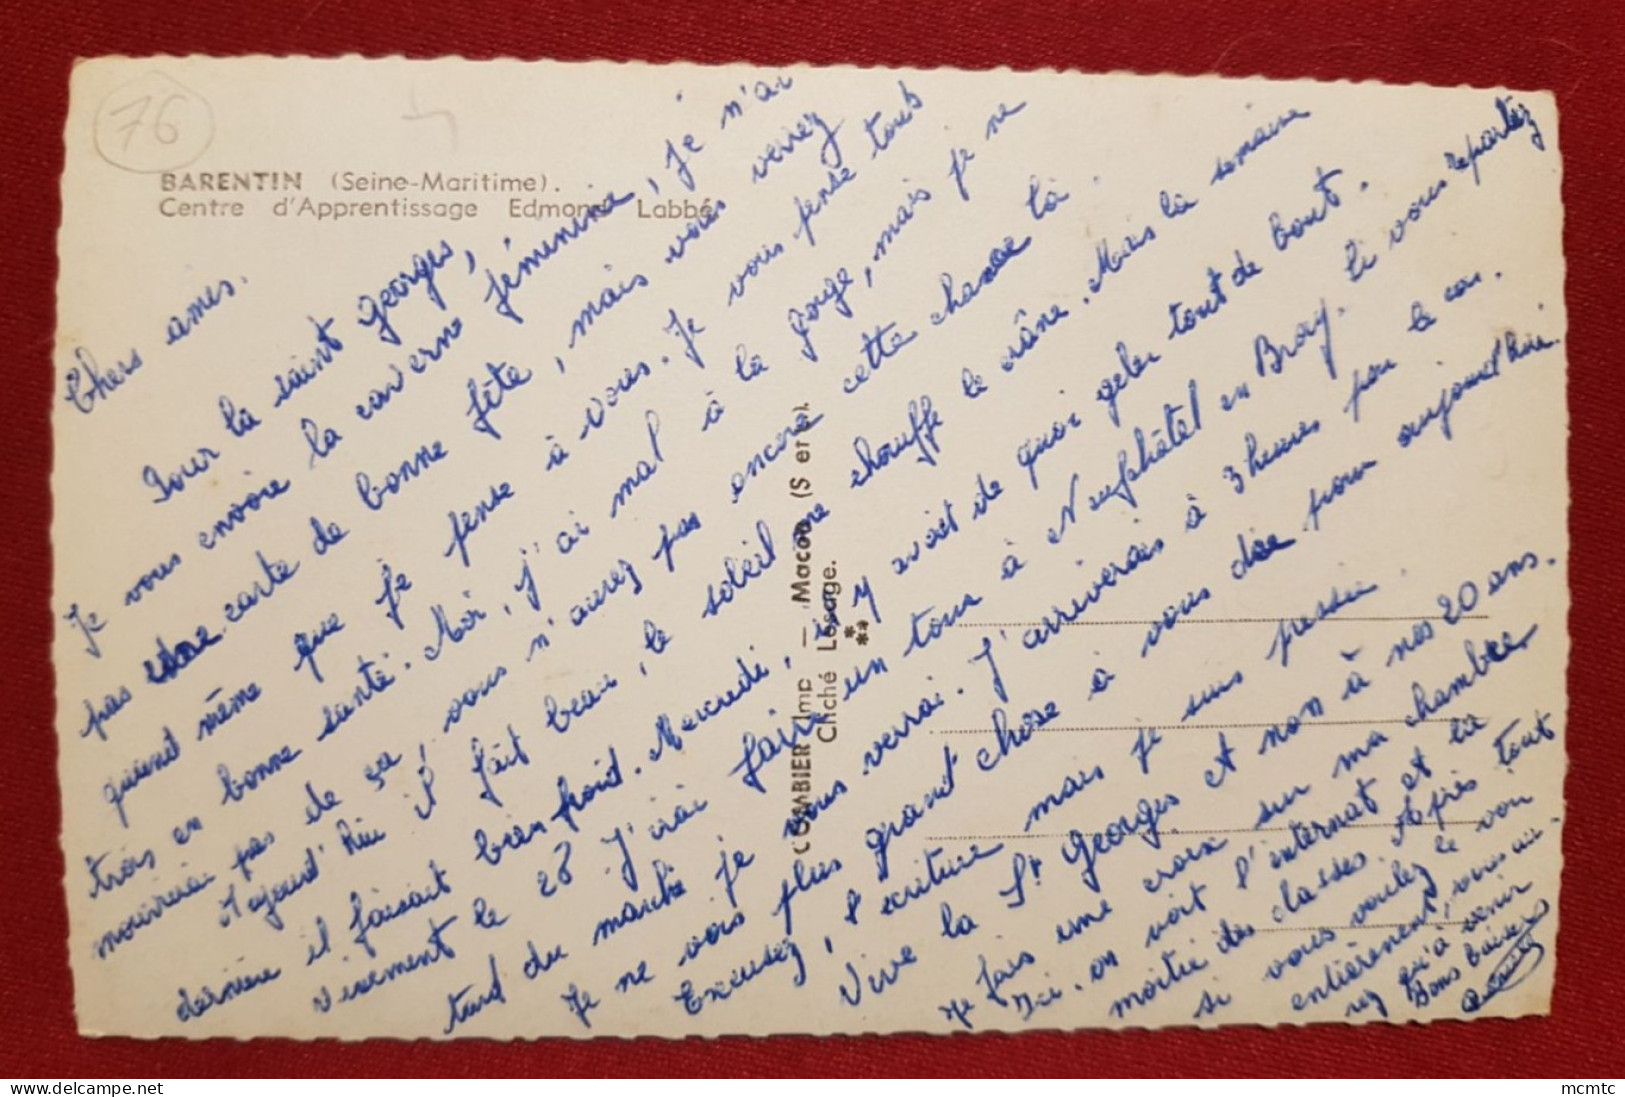 76
BARENTIN (Seine-Maritime).
Centre d'Apprentissage Edmond Labbé
COMBIER Imp. — Macon (S et L).
Cliché Lesage.
Chers amis.
Pour la saint Georges,
Je vous envoie la caverne féminine, je n'ai
pas carte de bonne fête, mais vous verrez
quand même que je pense à vous. Je vous pense tous
trois en bonne santé. Moi, j'ai mal à la gorge, mais je ne
mourrai pas de ça, vous n'aurez pas encore cette chance là.
Aujourd'hui il fait beau, le soleil me chauffe le crâne. Mais la semaine
dernière il faisait bien froid. Mercredi, il y avait de quoi geler tout debout.
Vivement le 28 J'irai faire un tour à Neufchâtel en Bray. Si vous repartez
tard du marché je vous verrai. J'arriverais à 3 heures par le car.
Je ne vois plus grand chose à vous dire pour aujourd'hui.
Excusez, l'écriture mais je suis pressée.
Vive la St Georges et non à nos 20 ans.
Je fais une croix sur ma chambre
Ici, on voit l'internat et la
moitié des classes. Après tout
si vous voulez le voir
entièrement, vous
rez qu'à venir
Bons baisers